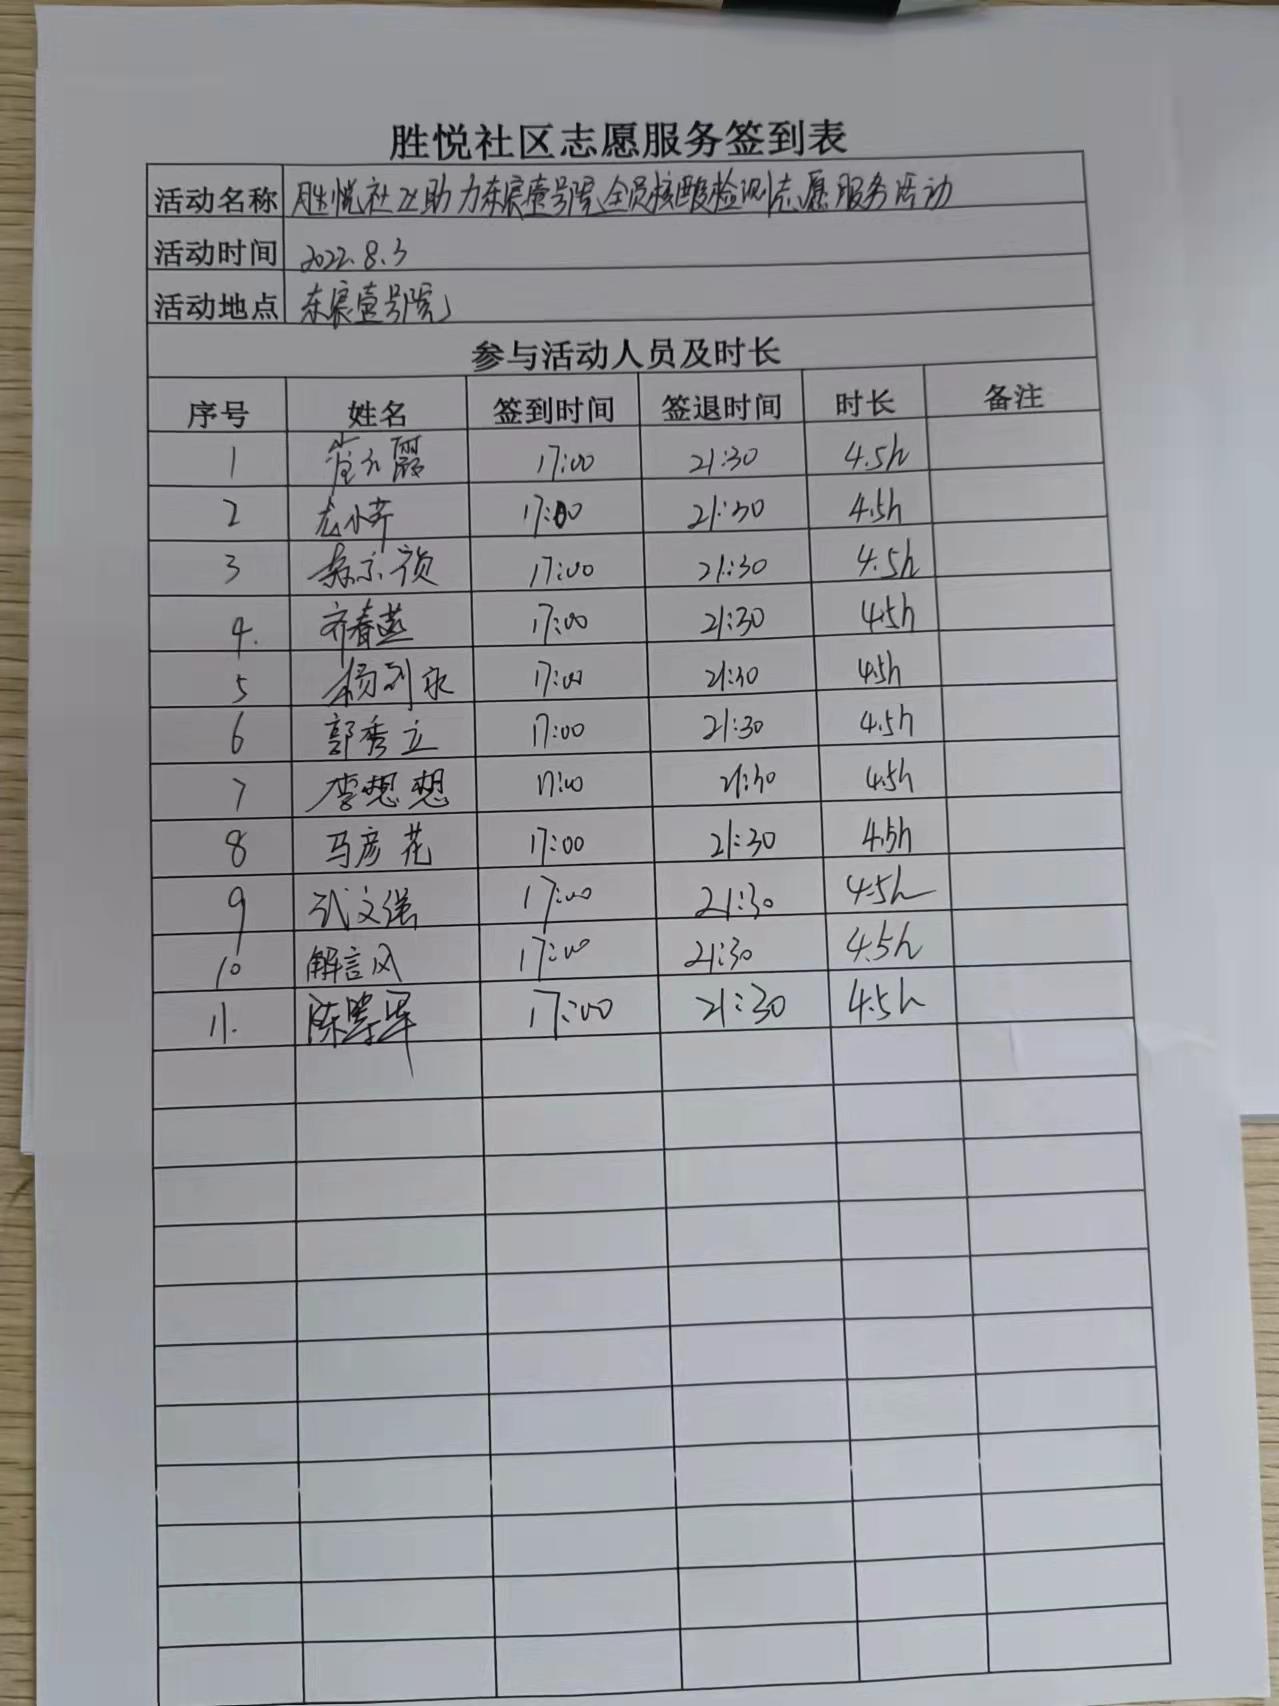 胜悦社区志愿服务签到表
活动名称 胜悦社区助力东宸壹号院全员核酸检测志愿服务活动
活动时间 2022.8.3
活动地点 东宸壹号院
参与活动人员及时长
序号 姓名 签到时间 签退时间 时长 备注
1 17:00 21:30 4.5h
2 17:00 21:30 4.5h
3 17:00 21:30 4.5h
4. 齐春燕 17:00 21:30 4.5h
5 杨利永 17:00 21:30 4.5h
6 郭秀立 17:00 21:30 4.5h
7 李想想 17:00 21:30 4.5h
8 马彦花 17:00 21:30 4.5h
9 文强 17:00 21:30 4.5h
10 解言风 17:00 21:30 4.5h
11. 陈 军 17:00 21:30 4.5h